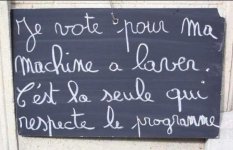 Je vote pour ma
machine a laver.
C'est la seule qui
respecte le programme